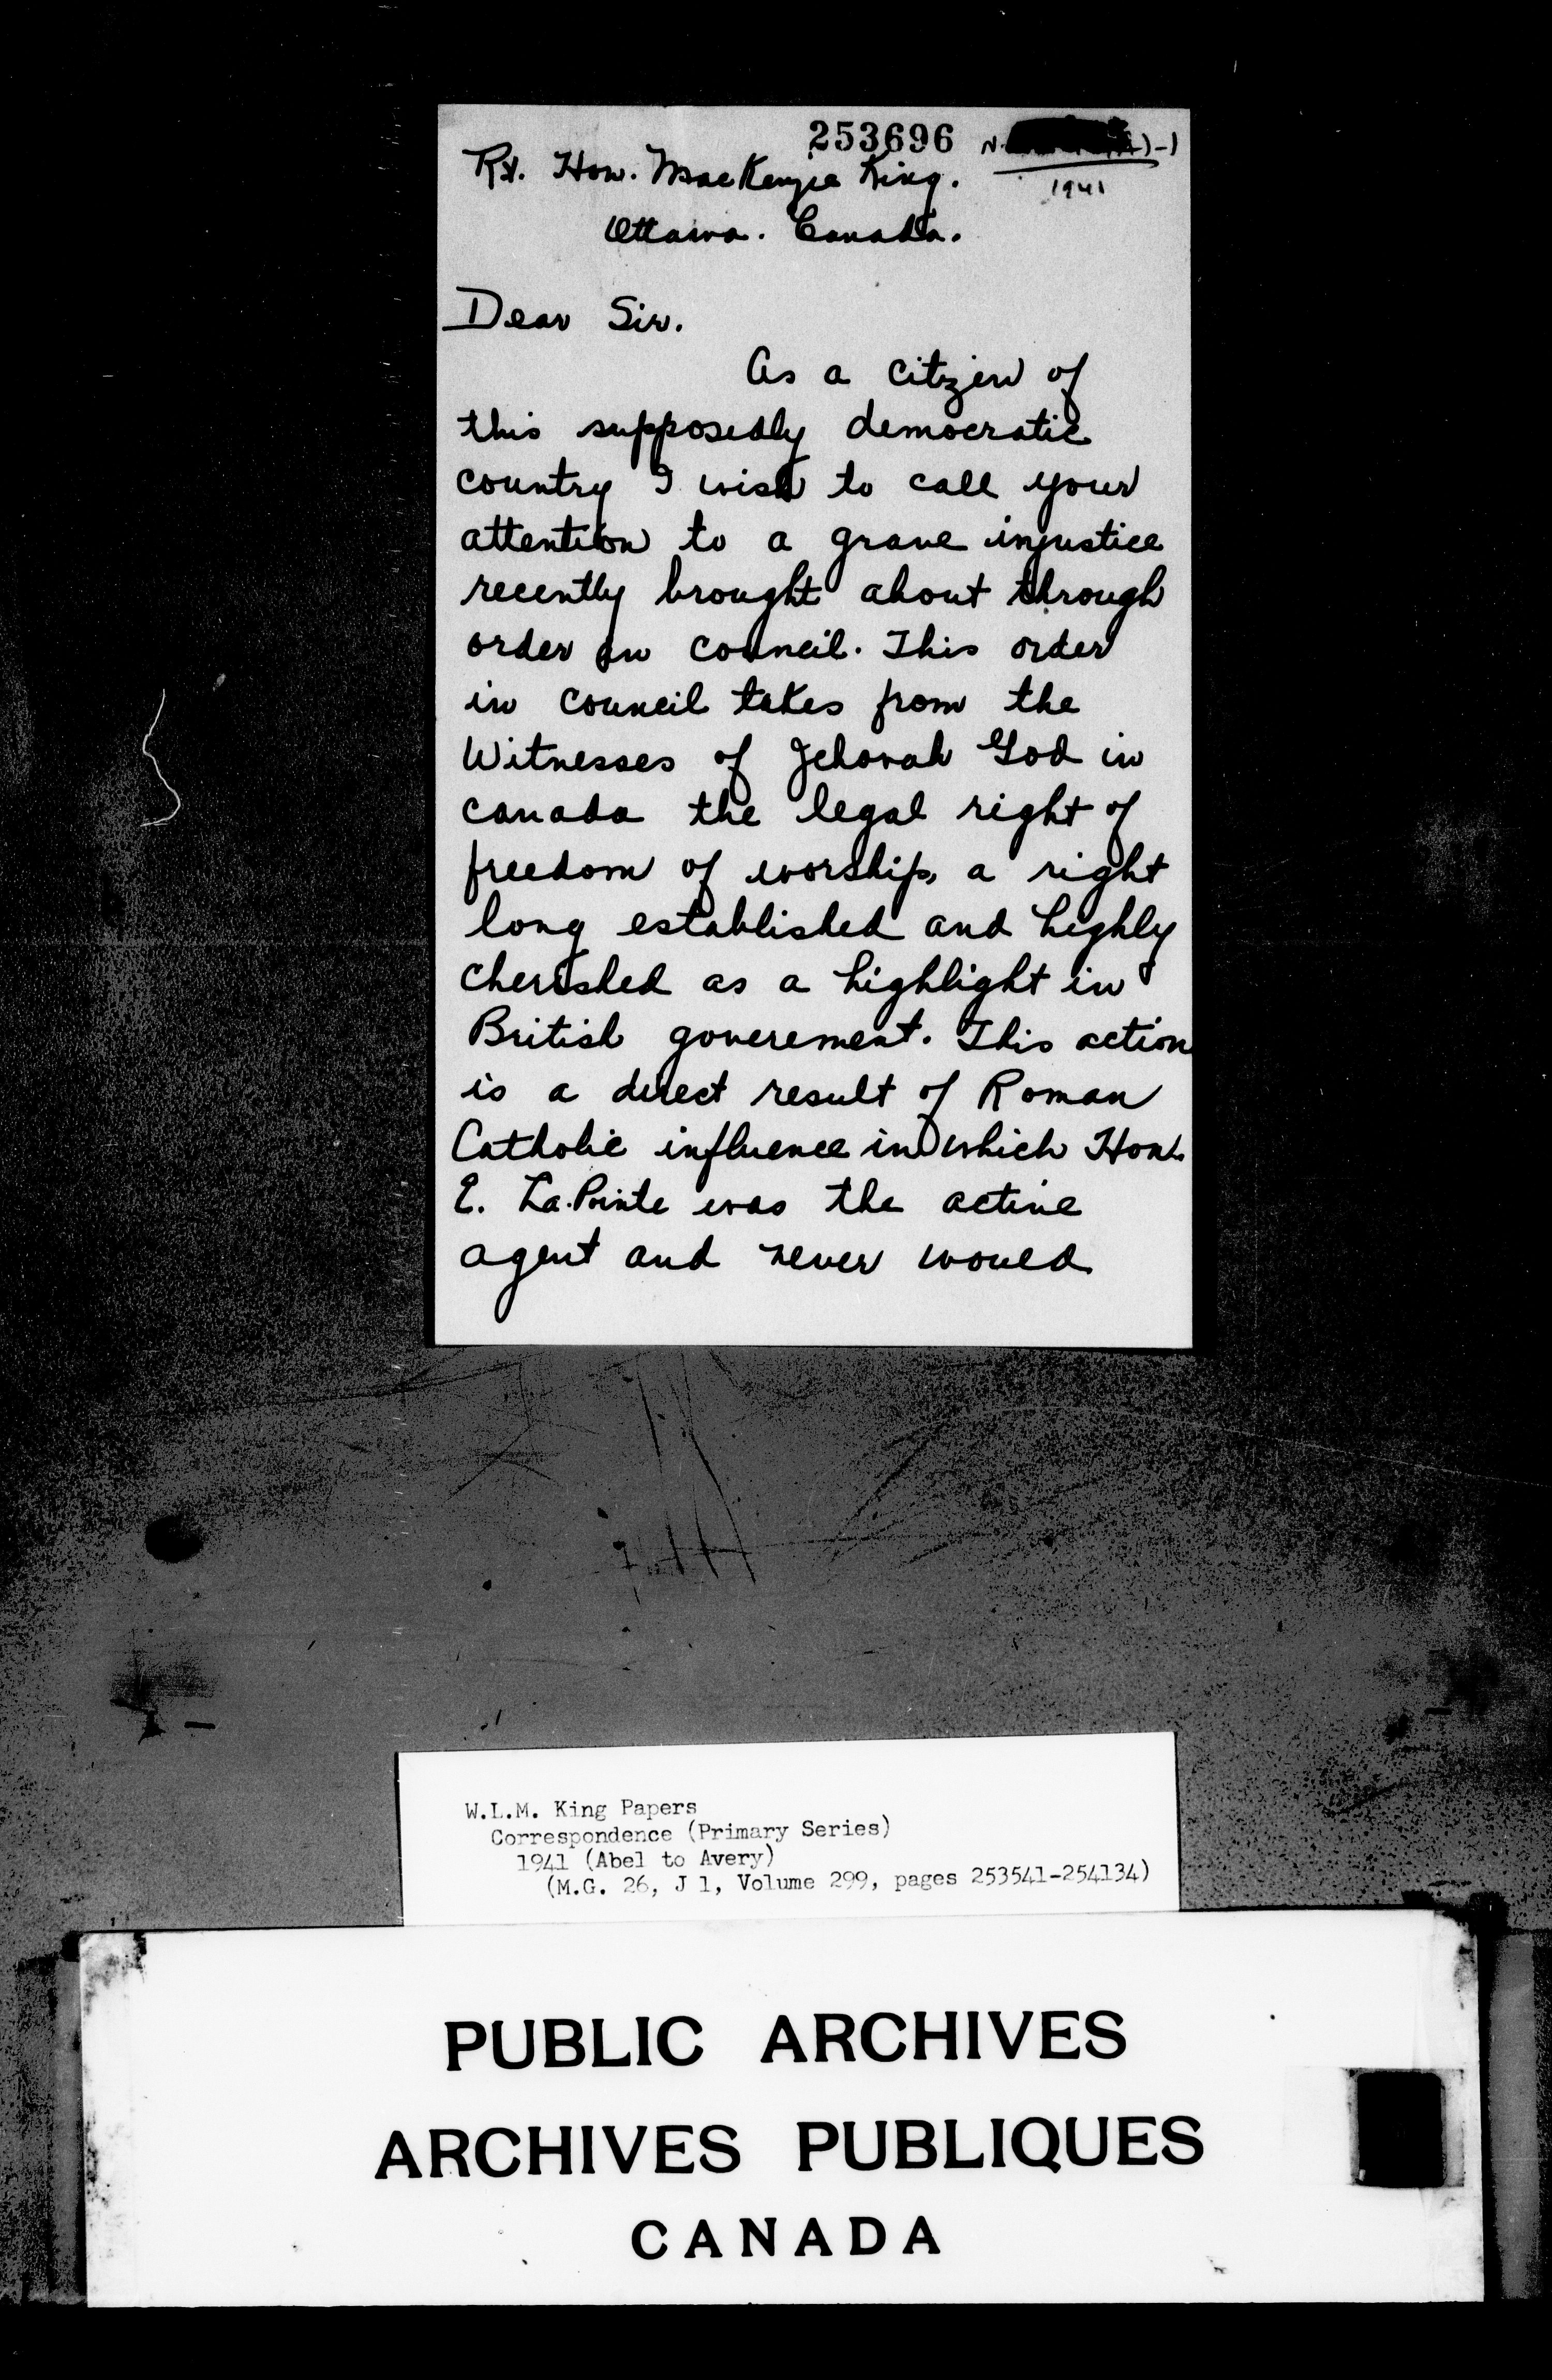 253696
Rt. Hon. MacKenzie King.
1941
Ottawa. Canada.
Dear Sir.
As a citizen of
this supposedly democratic
country I wish to call your
attention to a grave injustice
recently brought about through
order in council. This order
in council takes from the
Witnesses of Jehovah God in
Canada the legal right of
freedom of worship, a right
long established and highly
cherished as a highlight in
British goverement. This action
is a direct result of Roman
Catholic influence in which Hon.
E. La.Pointe was the active
agent and never would
W.L.M. King Papers
Correspondence (Primary Series)
1941 (Abel to Avery)
(M.G. 26, J 1, Volume 299, pages 253541-254134)
PUBLIC ARCHIVES
ARCHIVES PUBLIQUES
CANADA